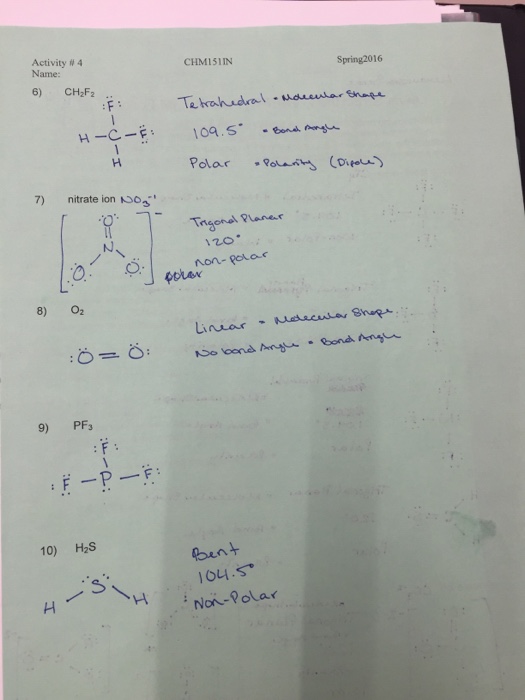 Activity # 4 CHM151IN Spring2016
Name:
6) CH₂F₂
Tetrahedral • Molecular Shape
109.5° • Bond Angle
Polar • Polarity (Dipole)
F
H - C - F
H
7) nitrate ion NO₃⁻¹
Trigonal Planar
120°
non-polar
polar
O
N
O O
8) O₂
Linear • Molecular Shape
No bond Angle • Bond Angle
O = O
9) PF₃
F
F - P - F
10) H₂S
Bent
104.5°
Non-Polar
S
H H